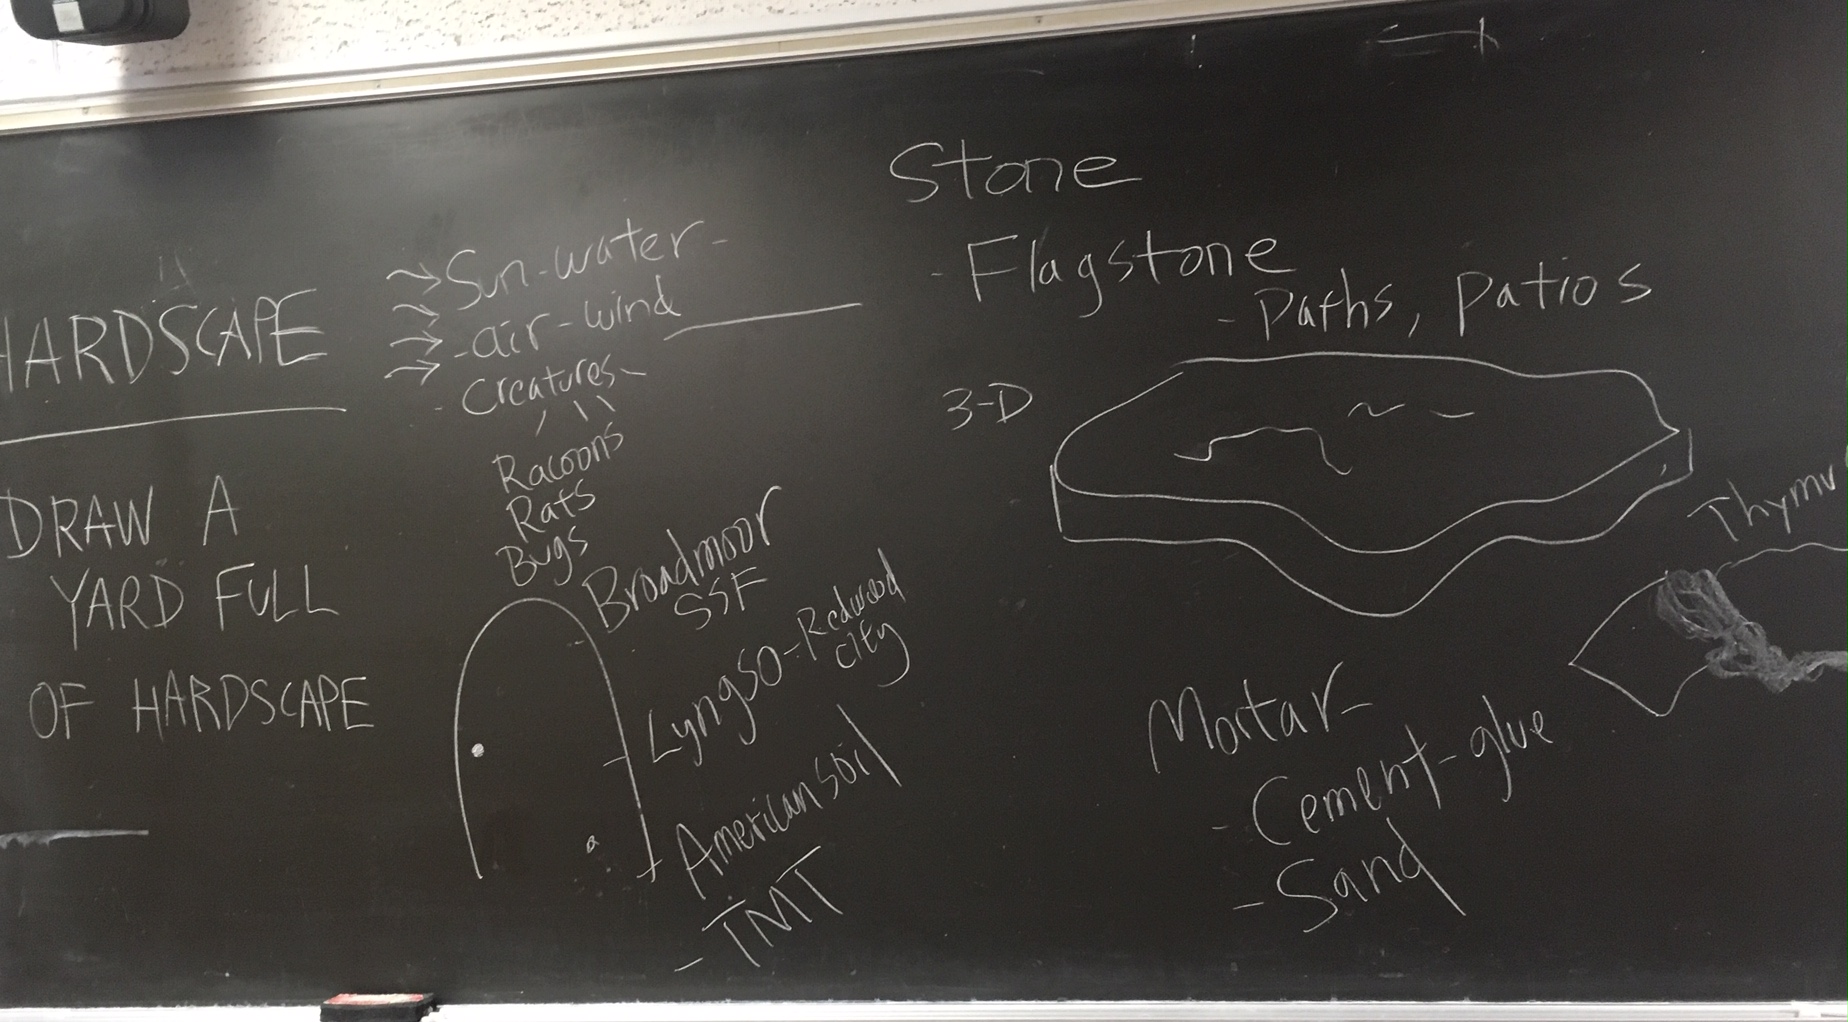 HARDSCAPE
DRAW A
YARD FULL
OF HARDSCAPE
Sun-water-
-air-wind
- Creatures-
Racoons
Rats
Bugs
Broadmoor
SSF
Lyngso-Redwood
city
American soil
- TMT
Stone
- Flagstone
- Paths, patios
3-D
Thyme
Mortar-
- Cement-glue
- Sand